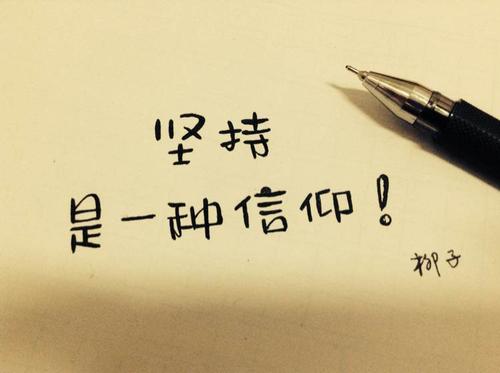 坚持
是一种信仰！
柳子